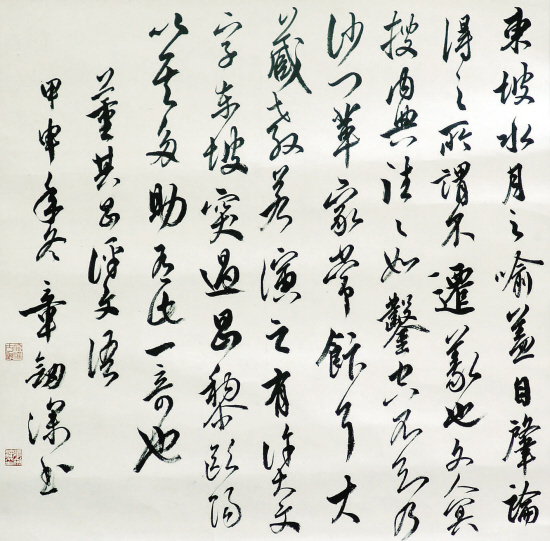 東坡水月之喻蓋自肇論
得之所謂不遷義也文人冥
搜內典往〻如鑿空不知乃
沙門輩家常飯耳大
藏教若演之有許大文
字東坡突過昌黎歐陽
以其多助有此一奇也
董其昌評文語
甲申年冬章劍深書